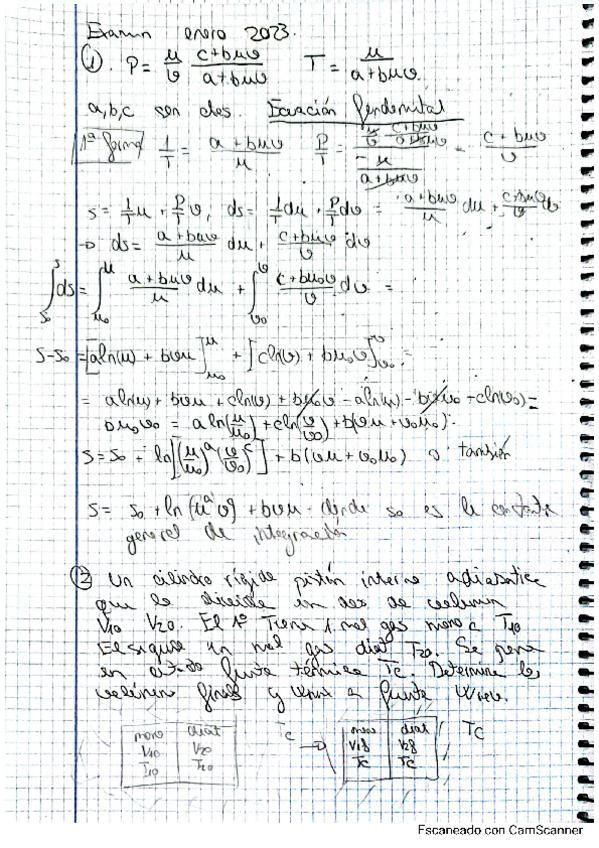 Examen enero 2023.
① P = u/v (c+buv)/(a+buv) T = u/(a+buv)
a, b, c son ctes. Ecuación fundamental
1ª forma 1/T = (a+buv)/u P/T = (u/v (c+buv)/(a+buv))/(u/(a+buv)) = (c+buv)/v
s = 1/T u + P/T v, ds = 1/T du + P/T dv = (a+buv)/u du + (c+buv)/v dv
→ ds = (a+buv)/u du + (c+buv)/v dv
∫_{s₀}^{s} ds = ∫_{u₀}^{u} (a+buv)/u du + ∫_{v₀}^{v} (c+bu₀v)/v dv =
s-s₀ = [a ln(u) + bvu]_{u₀}^{u} + [c ln(v) + bu₀v]_{v₀}^{v} =
= a ln(u) + bvu + c ln(v) + bu₀v - a ln(u₀) - bvu₀ - c ln(v₀) -
bu₀v₀ = a ln(u/u₀) + c ln(v/v₀) + b(vu + v₀u₀).
s = s₀ + ln[(u/u₀)^a (v/v₀)^c] + b(vu + v₀u₀) o también
s = s₀ + ln(u^a v^c) + bvu donde s₀ es la constante
general de integración
② Un cilindro rígido pistón interno adiabatico
que lo divide en dos de volumen
V10 V20. El 1º Tiene 1 mol gas mono a T10
El sigue un mol gas diat T20. Se pone
en fuente térmica Tc. Determine los
volúmenes finales y fuente
mono diat Tc mono diat Tc
V10 V20 → V1f V2f
T10 T20 Tc Tc
Escaneado con CamScanner